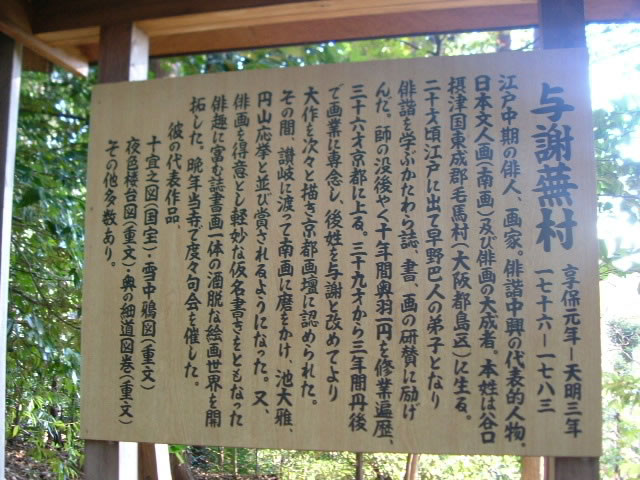 与謝蕪村
享保元年－天明三年
一七十六－一七八三
江戸中期の俳人、画家。俳諧中興の代表的人物、
日本文人画(南画)及び俳画の大成者。本姓は谷口
摂津国東成郡毛馬村(大阪都島区)に生る。
二十才頃江戸に出て早野巴人の弟子となり
俳諧を学ぶかたわら詩、書、画の研賛に励げ
んだ。師の没後やく十年間奥羽一円を修業遍歴、
三十六才京都に上る。三十九才から三年間丹後
で画業に専念し、後姓を与謝と改めてより
大作を次々と描き京都画壇に認められた。
その間、讃岐に渡って南画に磨をかけ、池大雅、
円山応挙と並び賞されるようになった。又、
俳画を得意とし軽妙な仮名書きをともなった
俳趣に富む詩書画一体の洒脱な絵画世界を開
拓した。晩年当寺で度々句会を催した。
彼の代表作品
十宜之図(国宝)・雪中鴉図(重文)
夜色楼台図(重文)・奥の細道図巻(重文)
その他多数あり。